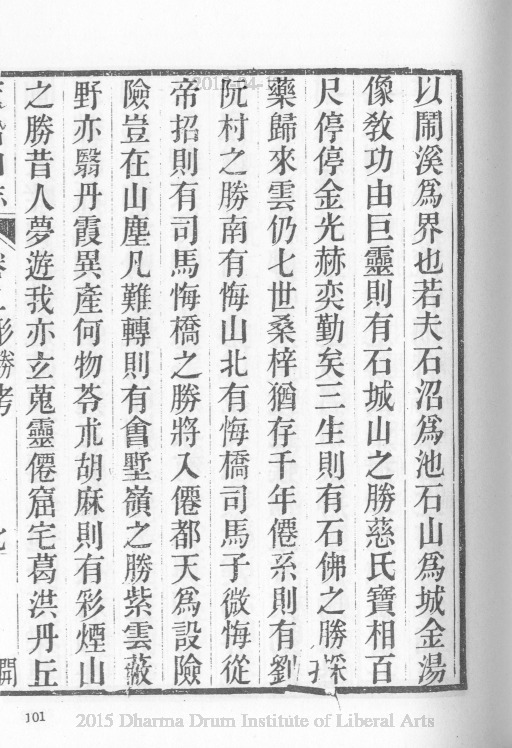 以鬧溪爲界也若夫石沼爲池石山爲城金湯
像教功由巨靈則有石城山之勝慈氏寶相百
尺停停金光赫奕勤矣三生則有石佛之勝採
藥歸來雲仍七世桑梓猶存千年僊系則有劉
阮村之勝南有悔山北有悔橋司馬子微悔從
帝招則有司馬悔橋之勝將入僊都天爲設險
險豈在山塵凡難轉則有會墅嶺之勝紫雲蔽
野亦翳丹霞異產何物苓朮胡麻則有彩煙山
之勝昔人夢遊我亦玄蒐靈僊窟宅葛洪丹丘
形勝考
開
101
2015 Dharma Drum Institute of Liberal Arts